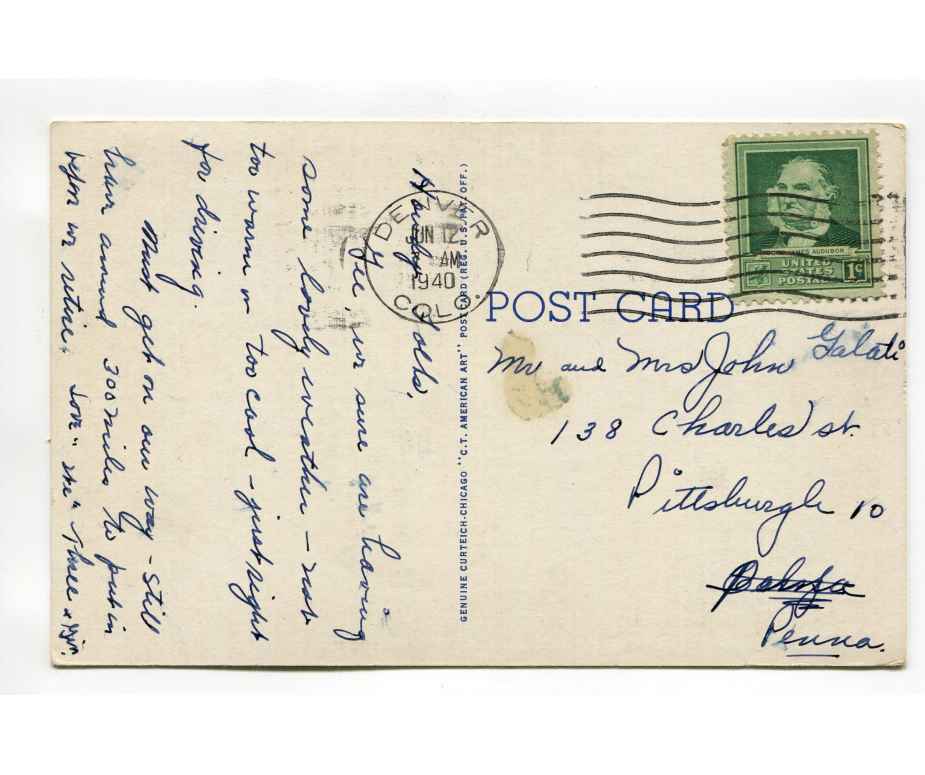 Folks,
Gee, we sure are having
some lovely weather – not
too warm or too cool – just right
for driving.
Must get on our way – Still
have around 300 miles to put in
before we retire. Love "the" Three
GENUINE CURTEICH-CHICAGO "C.T. AMERICAN ART" POST CARD (REG. U.S. PAT. OFF.)
DENVER
JUN 12
AM
1940
COLO.
AUDUBON
UNITED
STATES
POSTAGE
1¢
POST CARD
Mr and Mrs John Galati
138 Charles St.
Pittsburgh 10
Penna.